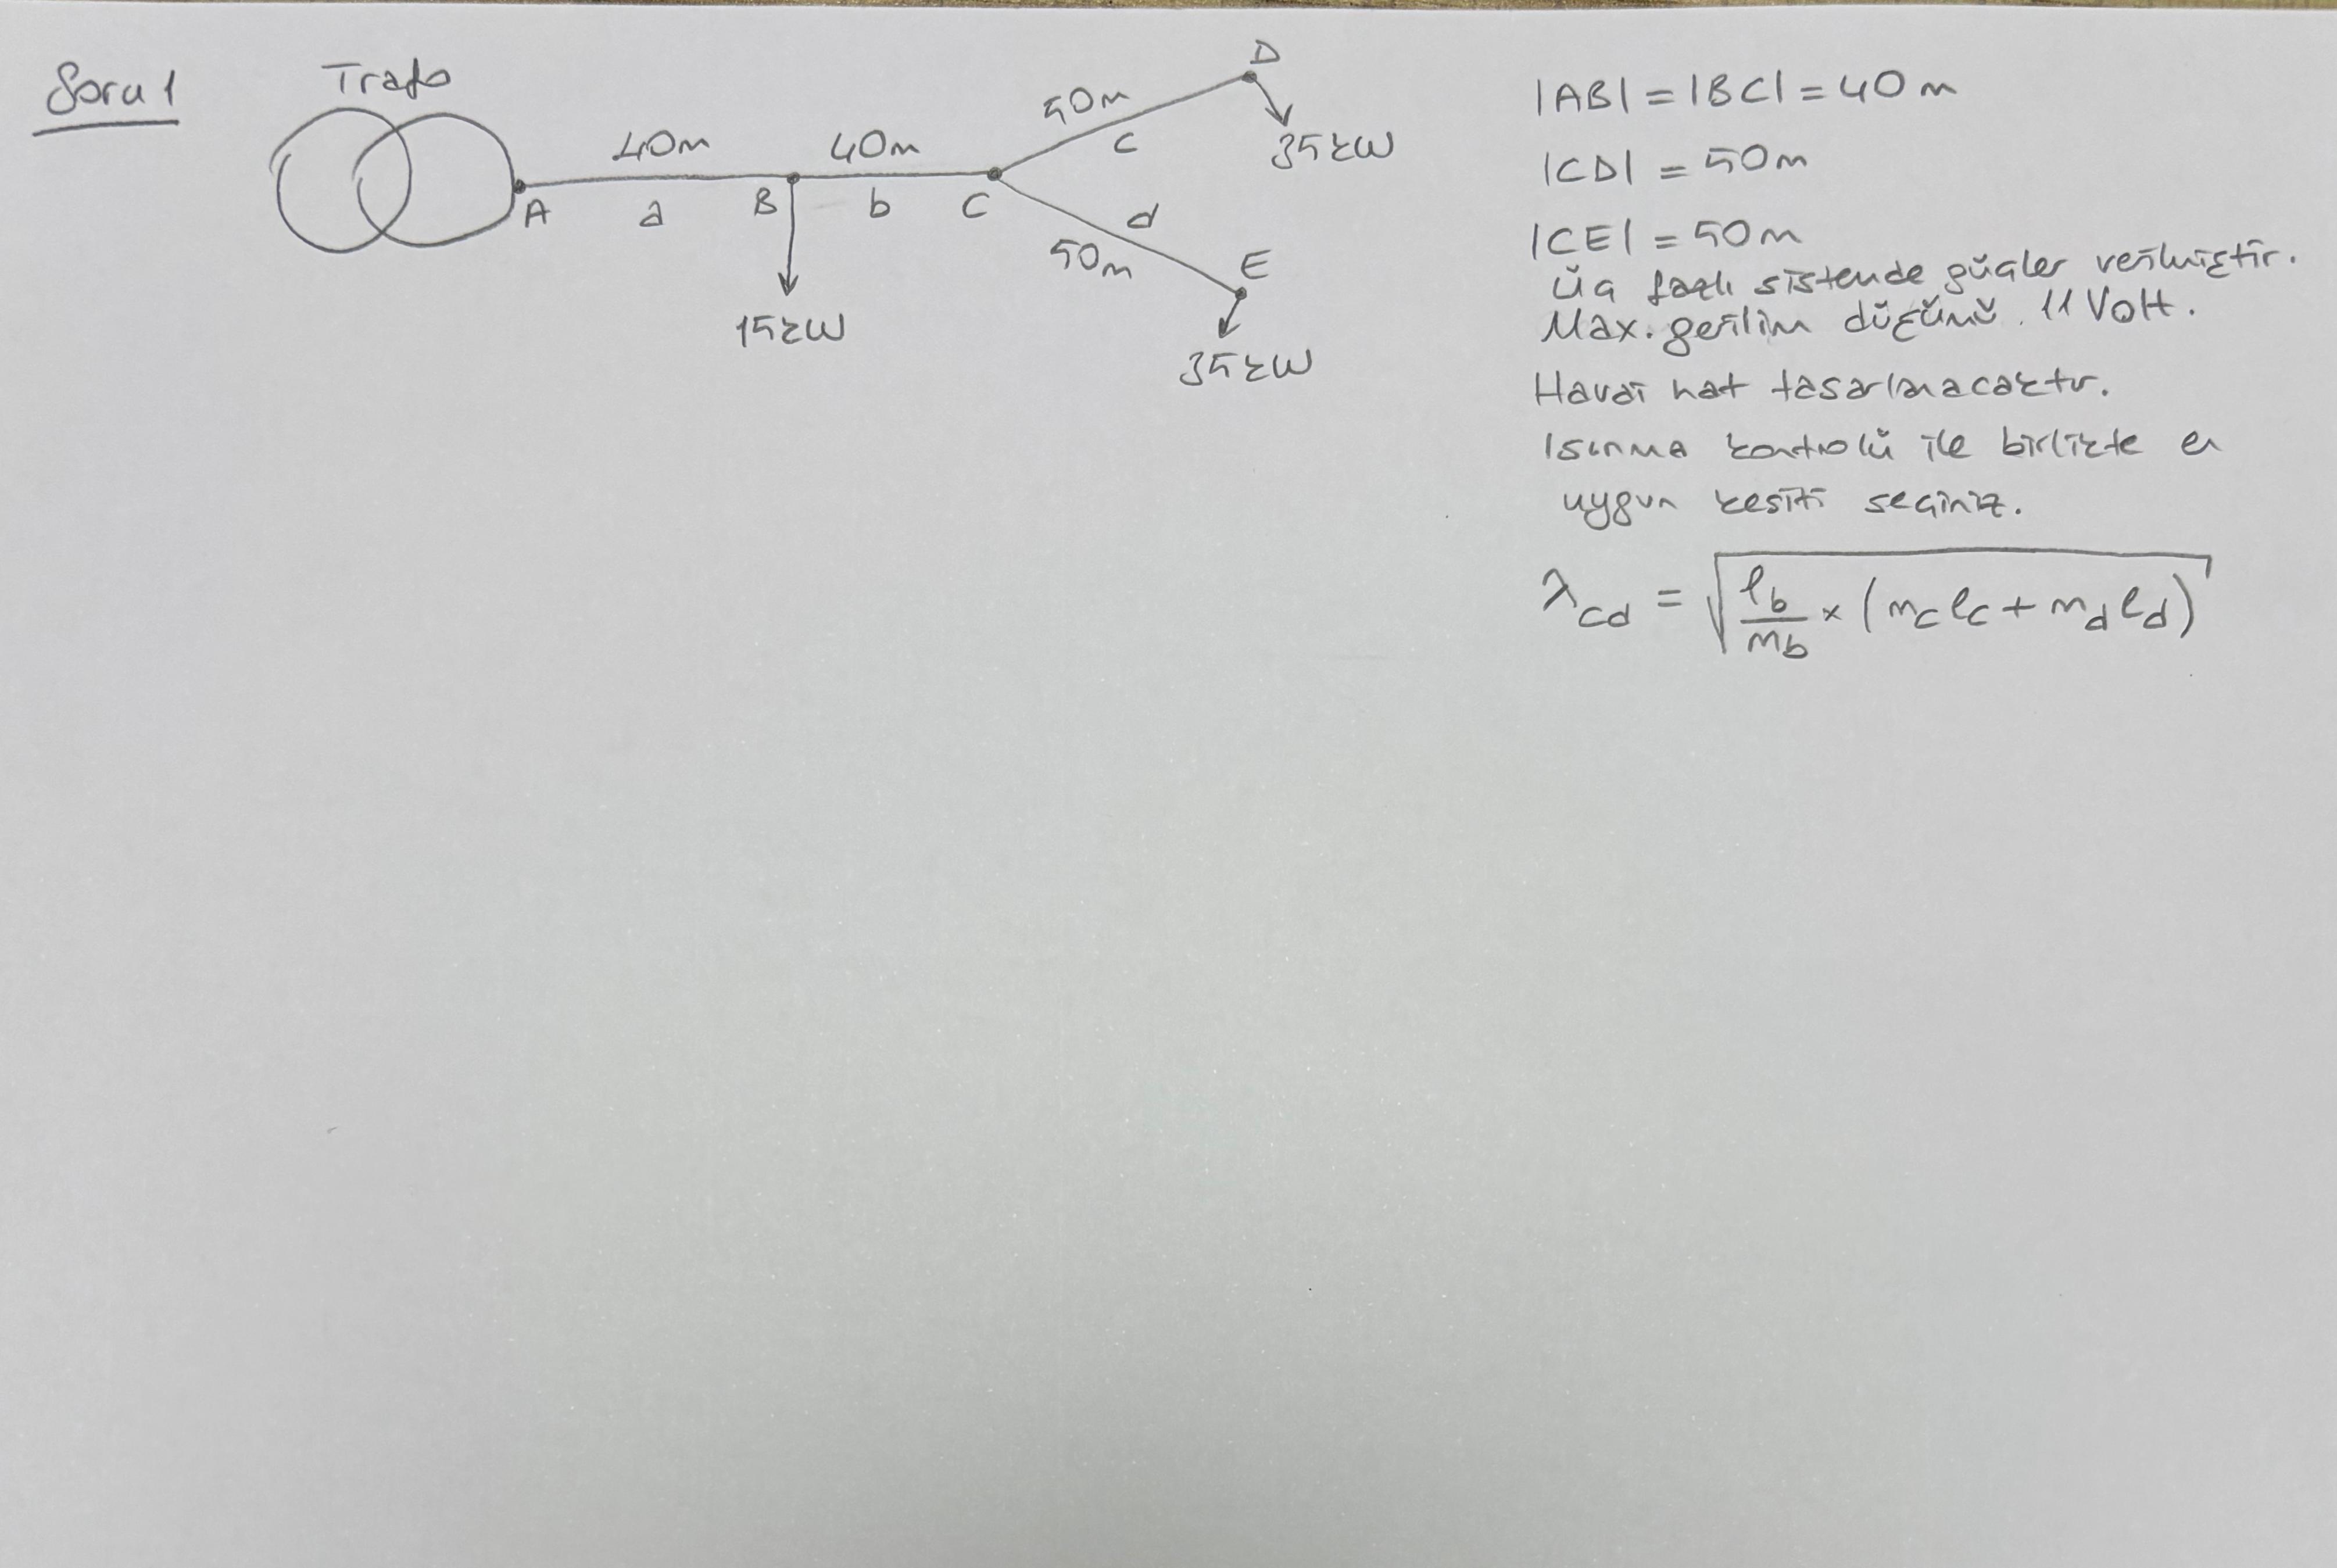 Soru 1
Trafo
40m
40m
50m
D
c
35kW
A
a
B
b
C
d
50m
E
15kW
35kW
|AB| = |BC| = 40m
|CD| = 50m
|CE| = 50m
Üç fazlı sistemde güçler verilmiştir.
Max. gerilim düşümü 11 Volt.
Havai hat tasarlanacaktır.
Isınma kontrolü ile birlikte en
uygun kesiti seçiniz.
λcd = √(ℓb/mb × (mcℓc + mdℓd))